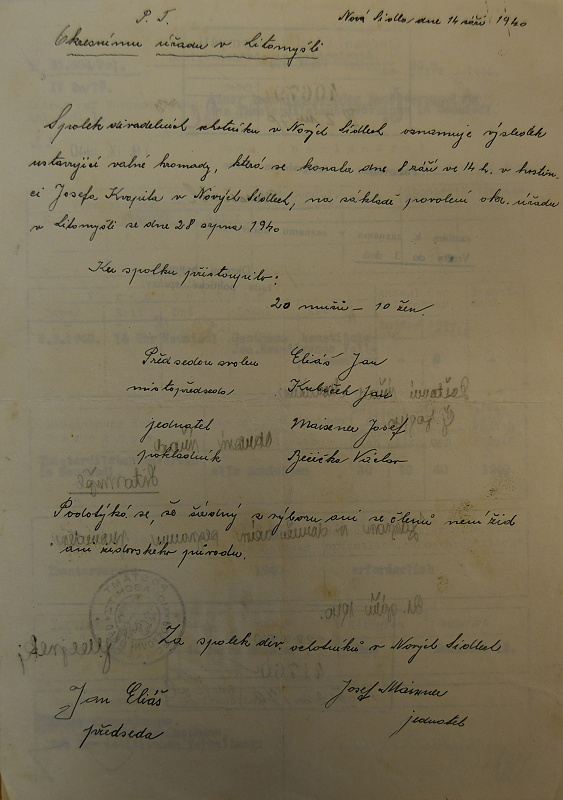 P. T.
Nová Sídla, dne 14 září 1940
Okresnímu úřadu v Litomyšli
Spolek divadelních ochotníků v Nových Sídlech oznamuje výsledek
ustavující valné hromady, která se konala dne 8 září ve 14 h. v hostin-
ci Josefa Kvapila v Nových Sídlech, na základě povolení okr. úřadu
v Litomyšli ze dne 28 srpna 1940
Ku spolku přistoupilo:
20 mužů – 10 žen.
Předsedou zvolen Eliáš Jan
místopředseda Kubíček Jan
jednatel Maixner Josef
pokladník Běčička Václav
Podotýká se, že žádný z výboru ani ze členů není žid
ani židovského původu.
Za spolek div. ochotníků v Nových Sídlech
Jan Eliáš
Josef Maixner
předseda
jednatel